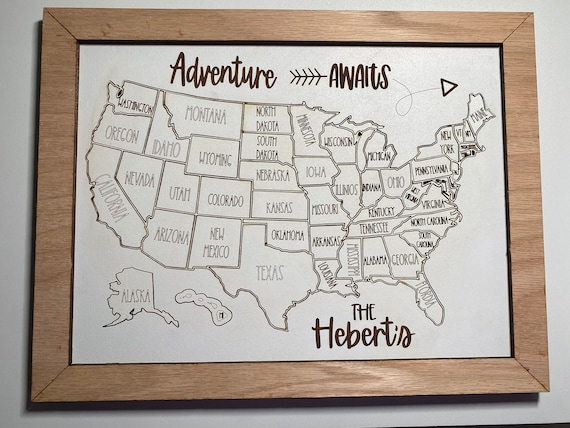 Adventure AWAITS
WASHINGTON
MONTANA
NORTH
DAKOTA
MINNESOTA
MAINE
OREGON
IDAHO
WYOMING
SOUTH
DAKOTA
WISCONSIN
MICHIGAN
NEW
YORK
VT
NH
NEVADA
UTAH
COLORADO
NEBRASKA
IOWA
ILLINOIS
INDIANA
OHIO
PENNSYLVANIA
CALIFORNIA
KANSAS
MISSOURI
KENTUCKY
VIRGINIA
ARIZONA
NEW
MEXICO
OKLAHOMA
ARKANSAS
TENNESSEE
NORTH CAROLINA
SOUTH
CAROLINA
TEXAS
LOUISIANA
MISSISSIPPI
ALABAMA
GEORGIA
FLORIDA
ALASKA
HI
THE
Hebert's